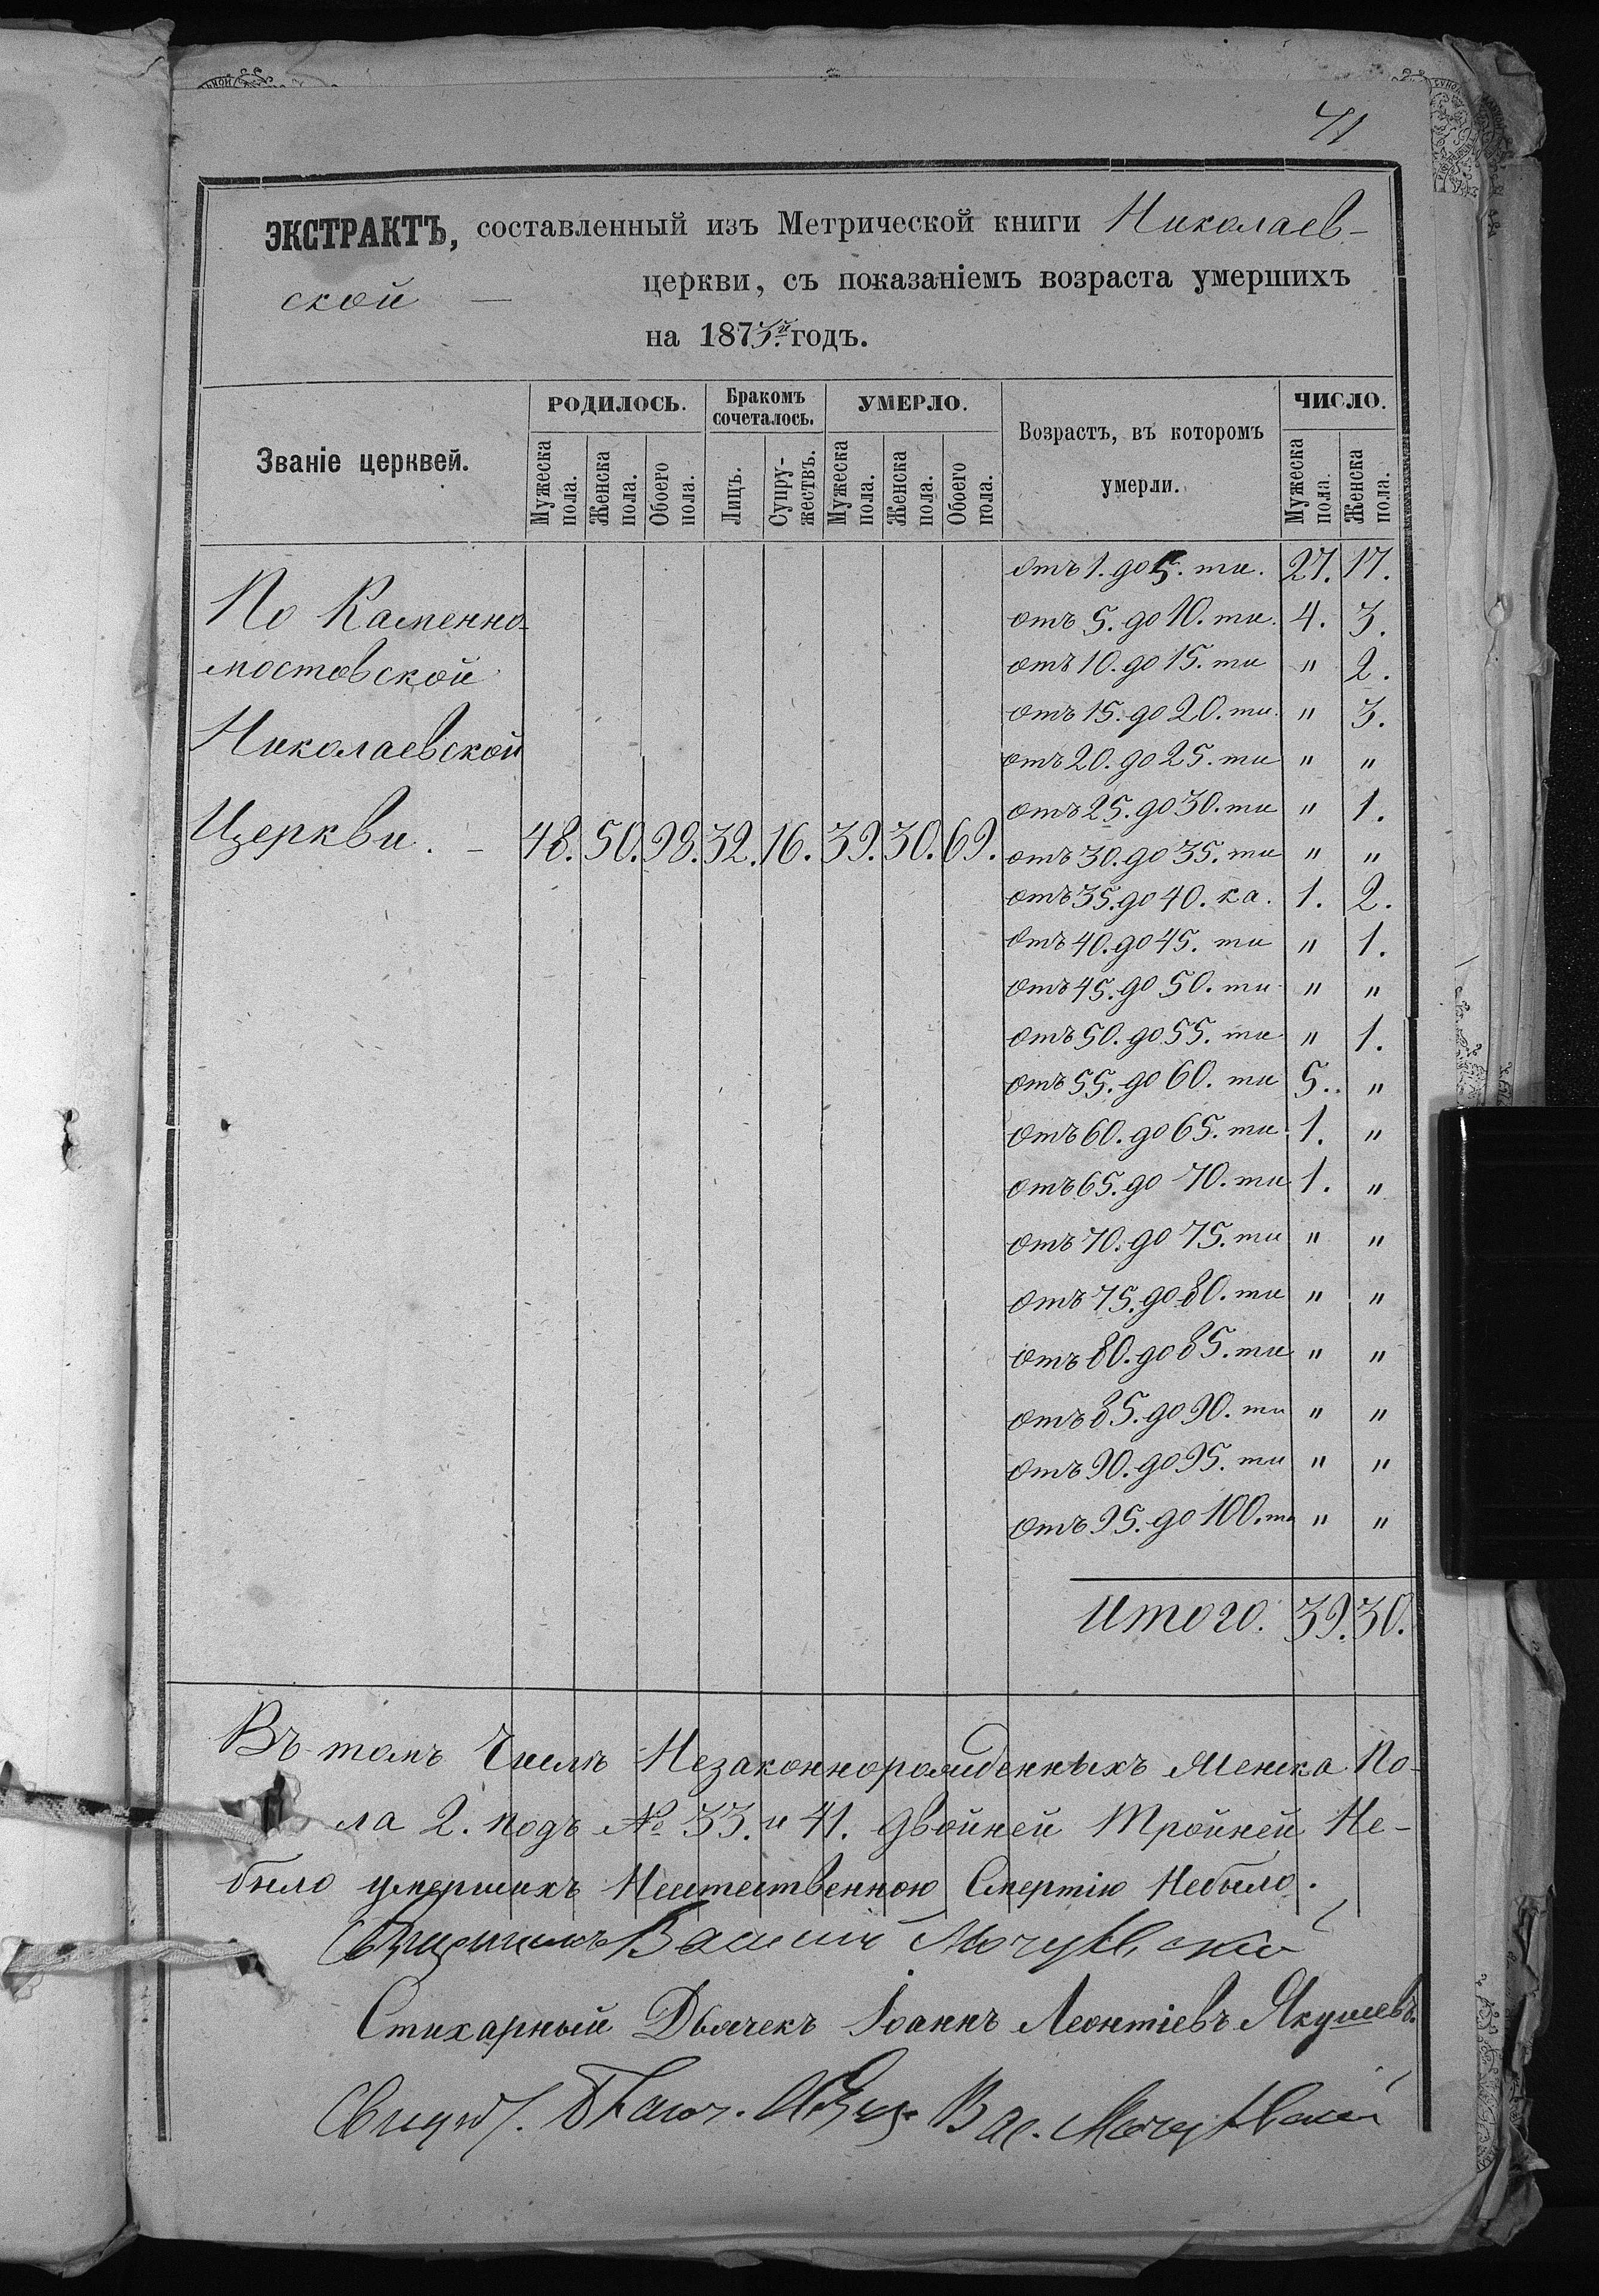 41
ЭКСТРАКТЪ, составленный изъ Метрической книги Николаев-
ской — церкви, съ показаніемъ возраста умершихъ
на 1873й годъ.
Званіе церквей.
РОДИЛОСЬ.
Мужеска пола.
Женска пола.
Обоего пола.
Бракомъ сочеталось.
Лицъ.
Супру-жествъ.
УМЕРЛО.
Мужеска пола.
Женска пола.
Обоего пола.
Возрастъ, въ которомъ
умерли.
ЧИСЛО.
Мужеска пола.
Женска пола.
По Каменно-
мостовской
Николаевской
Церкви. – 48. 50. 98. 32. 16. 39. 30. 69.
отъ 1. до 5. ти. 27. 17.
отъ 5. до 10. ти. 4. 3.
отъ 10. до 15. ти " 2.
отъ 15. до 20. ти. " 3.
отъ 20. до 25. ти " "
отъ 25. до 30. ти " 1.
отъ 30. до 35. ти " "
отъ 35. до 40. ка. 1. 2.
отъ 40. до 45. ти " 1.
отъ 45. до 50. ти " "
отъ 50. до 55. ти " 1.
отъ 55. до 60. ти 5.. "
отъ 60. до 65. ти 1. "
отъ 65. до 70. ти 1. "
отъ 70. до 75. ти " "
отъ 75. до 80. ти " "
отъ 80. до 85. ти " "
отъ 85. до 90. ти " "
отъ 90. до 95. ти " "
отъ 95. до 100. ти " "
Итого. 39. 30.
Въ томъ Числѣ Незаконнорожденныхъ Женска По-
ла 2. подъ № 33. и 41. двойней Тройней Не-
было умершихъ Неестественною Смертію Небыло.
Священникъ Василій
Стихарный Дьячекъ Іоаннъ Леонтіевъ Якушевъ.
Вас.